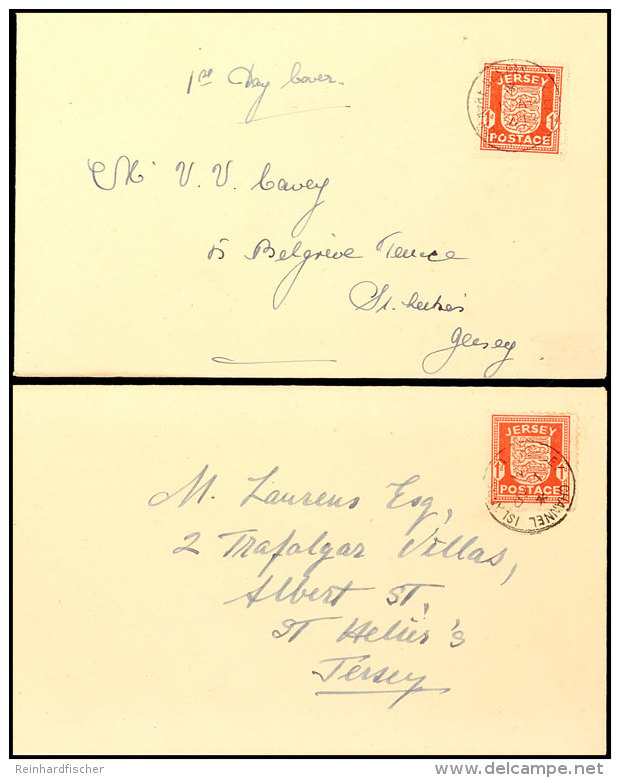 1st Day Cover
JERSEY
1d 1d
POSTAGE
Mr V. V. Cavey
15 Belgrève Terrace
St. Helier's
Jersey
JERSEY
1d 1d
POSTAGE
CHANNEL ISLA
M. Laurens Esq,
2 Trafalgar Villas,
Albert ST,
ST Helier's
Jersey
Reinhardfischer
© www.delcampe.net